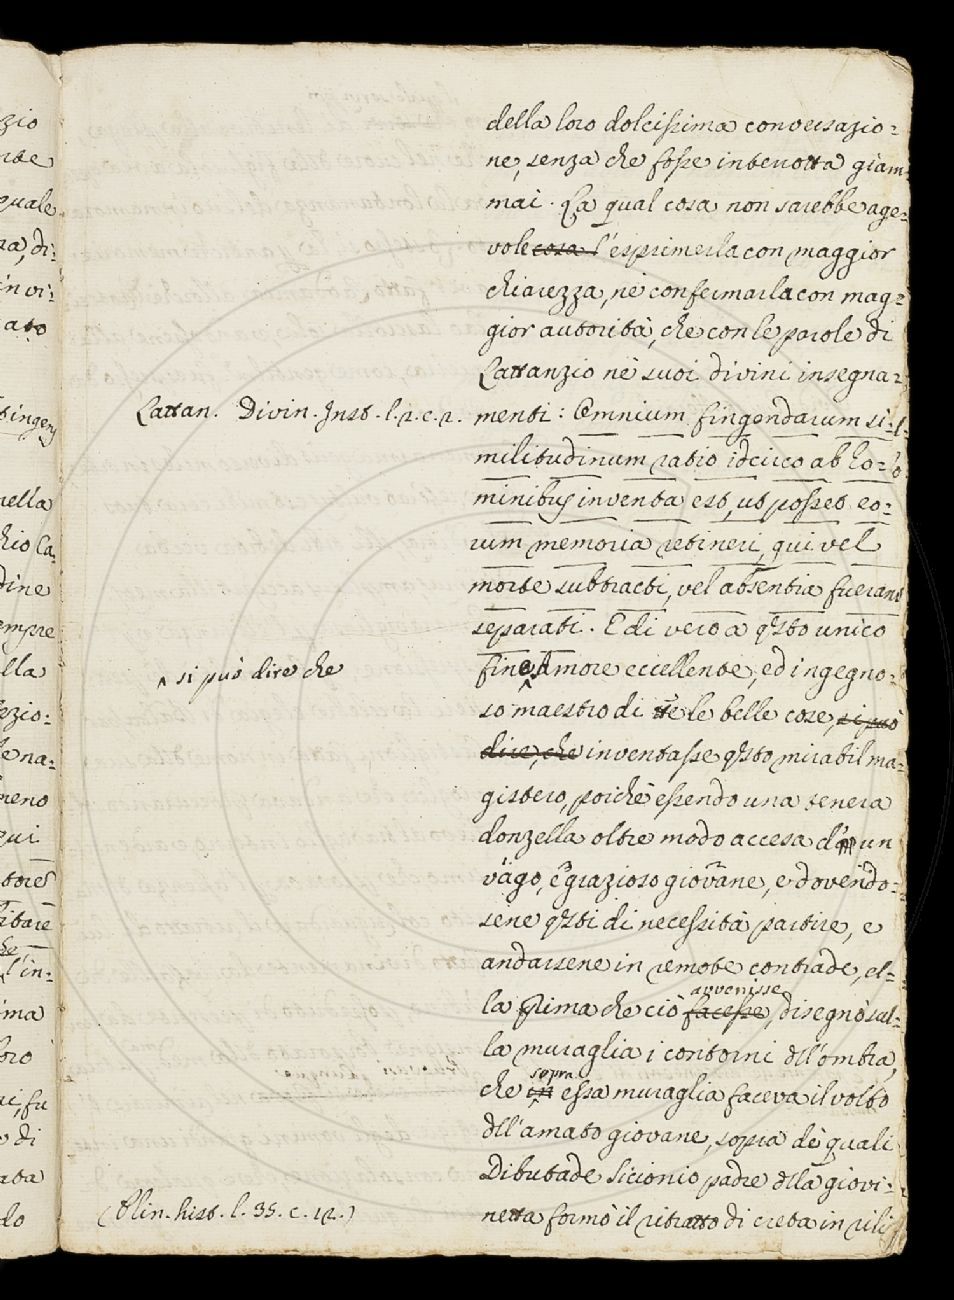 della loro dolcissima conversazio=
ne, senza che fosse interrotta giam=
mai. La qual cosa non sarebbe age=
vole cosa l'esprimerla con maggior
chiarezza, nè confermarla con mag=
gior autorità, che con le parole di
Lattanzio nè suoi divini insegna=
Lattan. Divin. Inst. l.2.c.2.
menti: Omnium fingendarum si=
militudinum ratio idcirco ab ho=
minibus inventa est, ut posset eo=
rum memoria retineri, qui vel
morte subtracti, vel absentia fuerant
separati. E di vero a qsto unico
si può dire che
fine Amore eccellente, ed ingegno=
so maestro di tte le belle cose, si può
dire, che inventasse qsto mirabil ma=
gistero, poichè essendo una tenera
donzella oltre modo accesa d' un
vago, e grazioso giovane, e dovendo=
sene qsti di necessità partire, e
andarsene in remote contrade, el=
la prima che ciò facesse avvenisse, disegnò sul=
la muraglia i contorni dll'ombra,
che in sopra essa muraglia faceva il volto
dll'amato giovane, sopra dè quali
Dibutade Sicionio padre dlla giovi=
(Plin. hist. l. 35. c. 12.)
netta formò il ritratto di creta in rili
zio
quale
di=
invi=
ato
nella
dine
empre
lla
ezio=
ena=
meno
qui
l'in=
ima
oro
fu
di
ata
do